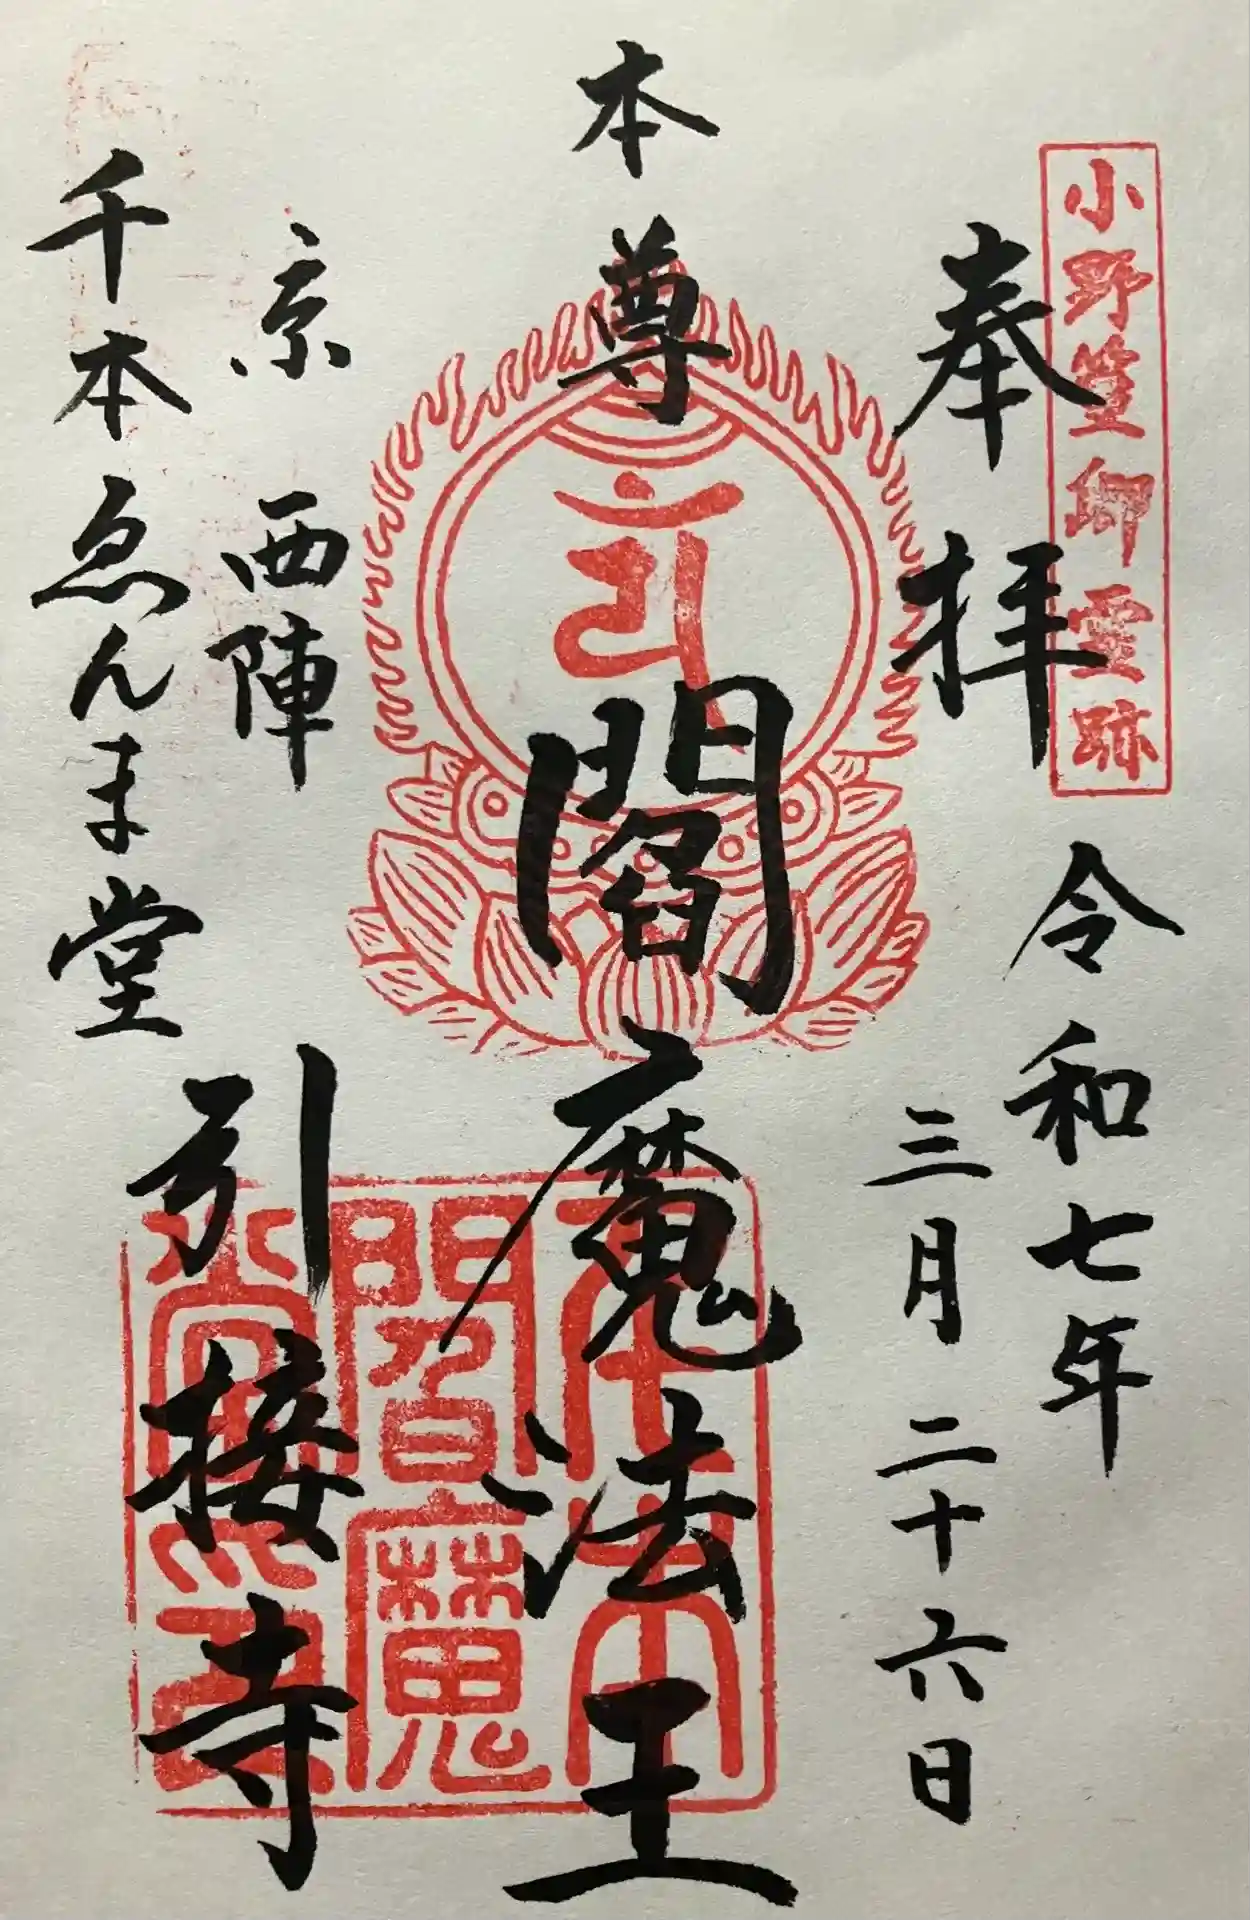 小野篁卿霊跡
奉拝
令和七年
三月二十六日
本尊
閻魔法王
京西陣
千本ゑんま堂
引接寺
千本
閻魔
堂印